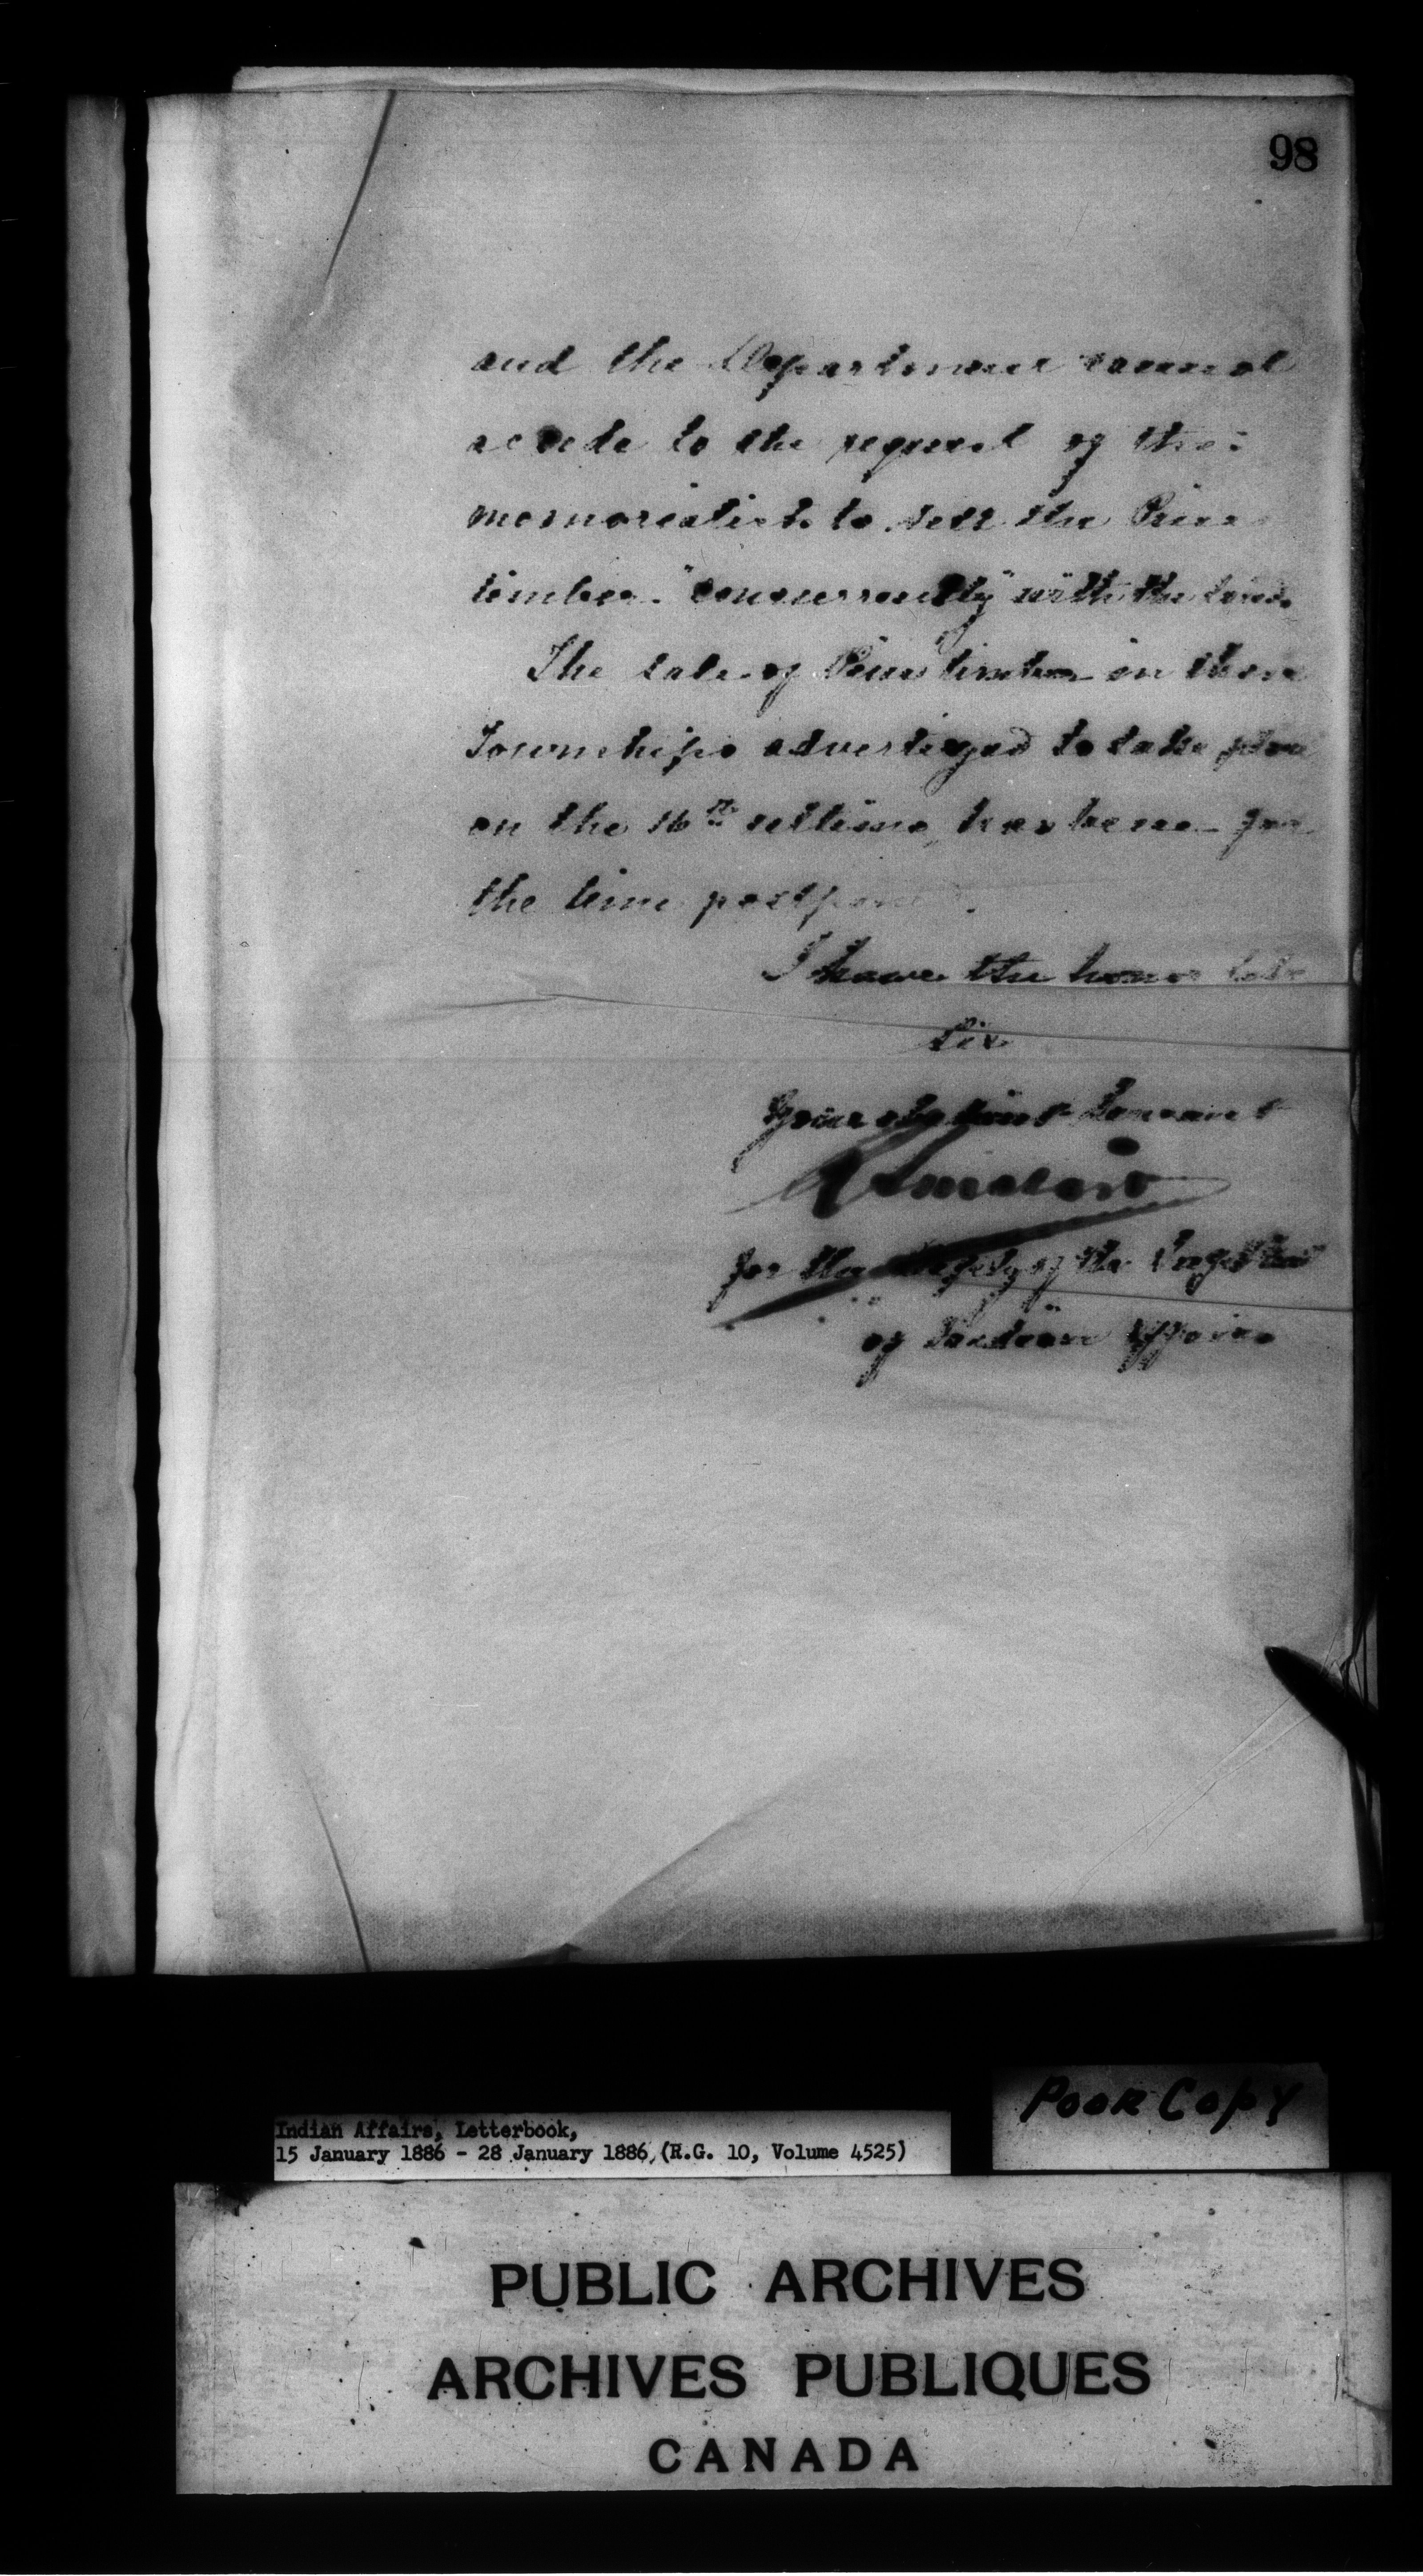 98
and the Department cannot
accede to the request of the
memorialists to sell the Pine
timber "concurrently" with the land.
The sale of Pine timber in these
Townships advertized to take place
on the 16th ultimo, has been for
the time postponed.
I have the honor to be
Sir
Your obedient Servant
R Sinclair
for the Deputy of the Supt Genl
of Indian Affairs
Indian Affairs, Letterbook,
15 January 1886 - 28 January 1886, (R.G. 10, Volume 4525)
Poor Copy
PUBLIC ARCHIVES
ARCHIVES PUBLIQUES
CANADA